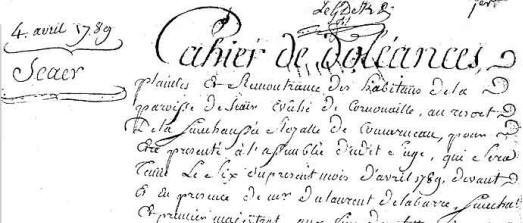 4. avril 1789
Scaer
Cahier de doléances,
plaintes et Remontrance des habitans de la
paroisse de Scaër Evêché de Cornouaille, au resort
De la Senechaussée Royalle de Concarneau, pour
Etre presenté à l'assemblée d'udit siege, qui sera
Tenue Le Six du present mois d'avril 1789. devant
Et en presence de mr du Laurent delabarre, Senechal
Et premier